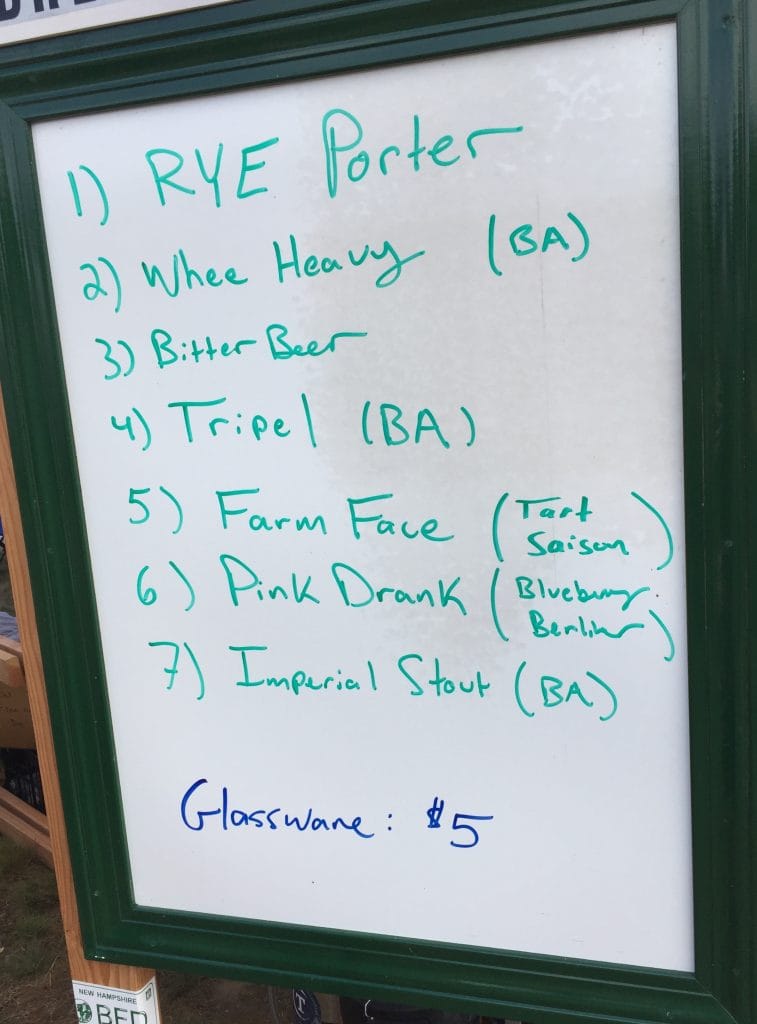 1) RYE Porter
2) Whee Heavy (BA)
3) Bitter Beer
4) Tripel (BA)
5) Farm Face (Tart
Saison)
6) Pink Drank (Blueberry
Berliner)
7) Imperial Stout (BA)
Glassware: $5
NEW HAMPSHIRE